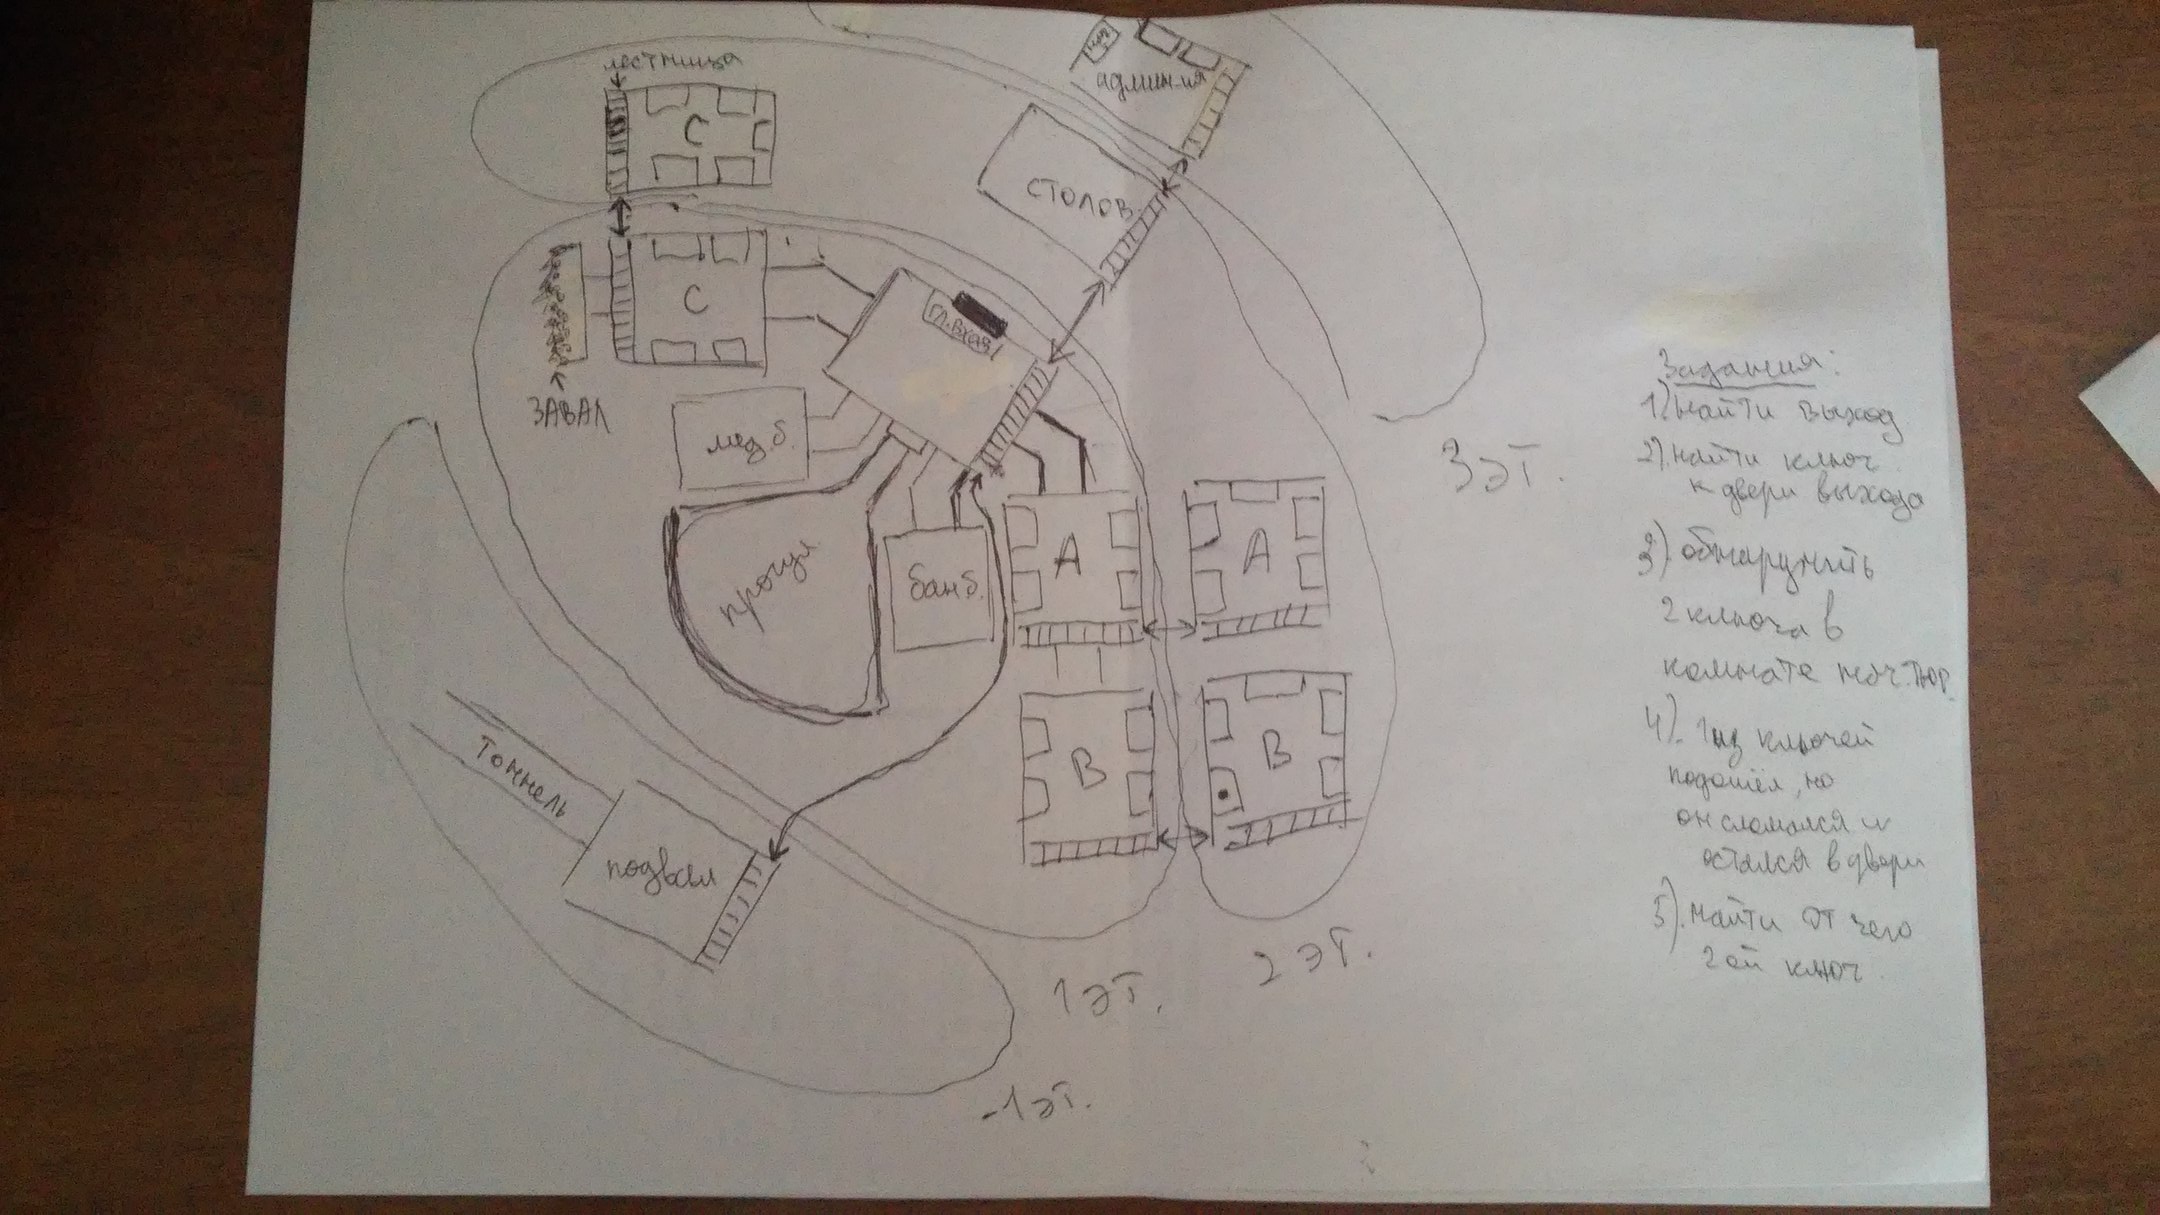 лестница
С
админ-я
столов.
С
гл. вход
ЗАВАЛ
мед. б.
прогул
бан б.
А
А
В
В
Тоннель
подвал
3 эт.
2 эт.
1 эт.
-1 эт.
Задания:
1) Найти выход
2). Найти ключ
к двери выхода
3). обнаружить
2 ключа в
комнате нач. тюр.
4). 1 из ключей
подошёл, но
он сломался и
остался в двери
5). Найти от чего
2ой ключ.